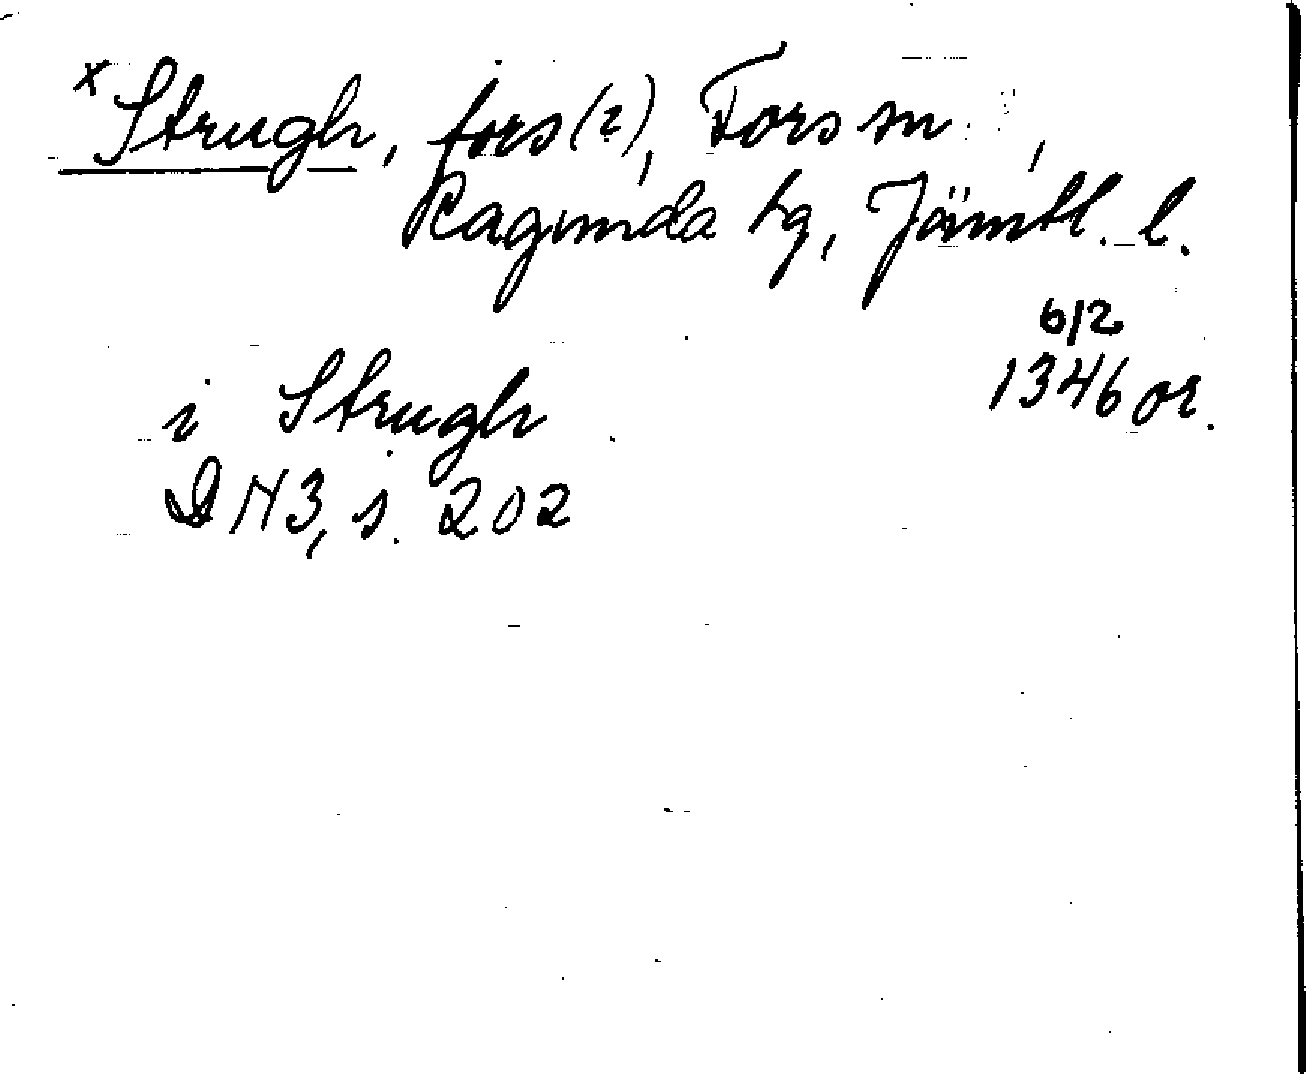 x Strugh, fors(?), Fors sn,
Ragunda tg, Jämtl. l.
6/2
1346 or.
i Strugh
DN3, s. 202